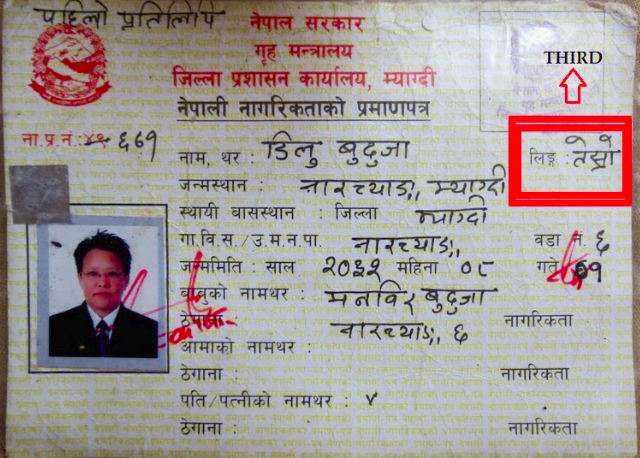 पहिलो प्रतिलिपि
नेपाल सरकार
गृह मन्त्रालय
जिल्ला प्रशासन कार्यालय, म्याग्दी
नेपाली नागरिकताको प्रमाणपत्र
THIRD
ना.प्र.नं.: ६७१
नाम, थर : डिलु बुदुजा
लिङ्ग : तेस्रो
जन्मस्थान : नारच्याङ, म्याग्दी
स्थायी वासस्थान : जिल्ला म्याग्दी
गा.वि.स./उ.म.न.पा. नारच्याङ, वडा नं. ६
जन्ममिति : साल २०३२ महिना ०८ गते
बाबुको नामथर : मनविर बुदुजा
ठेगाना : नारच्याङ, ६ नागरिकता
आमाको नामथर :
ठेगाना : नागरिकता
पति/पत्नीको नामथर :
ठेगाना : नागरिकता